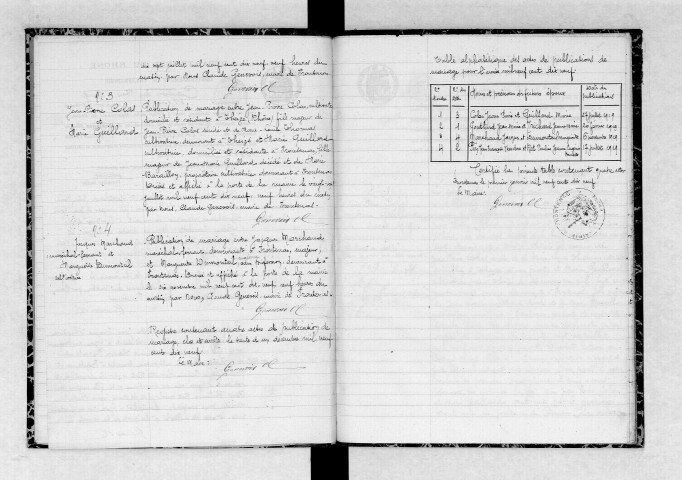 dix sept juillet mil neuf cent dix neuf, neuf heures du
matin, par Nous Claude Genevois, maire de Frontenas.
Genevois Cl
N° 3
Jean Pierre Colas
et
Marie Guillard
Publication de mariage entre Jean Pierre Colas, cultivateur
domicilié et résidant à Theizé, Rhône, fils majeur de
Jean Pierre Colas décédé et de
cultivatrice demeurant à Theizé et Marie Guillard
cultivatrice, domiciliée et résidante à Frontenas, fille
majeure de Jean Marie Guillard décédé et de Marie
propriétaire cultivatrice demeurant à Frontenas.
et affiché à la porte de la mairie le vingt sept
juillet mil neuf cent dix neuf, neuf heures du matin
par nous, Claude Genevois, maire de Frontenas.
Genevois Cl
N° 4
Jacques Marchand
maréchal-ferrant et
Marguerite Dumontet
Publication de mariage entre Jacques Marchand
maréchal-ferrant, demeurant à Frontenas, majeur,
et Marguerite Dumontet, sans profession, demeurant à
Frontenas. Dressé et affiché à la porte de la mairie
le six novembre mil neuf cent dix neuf, neuf heures du
matin, par Nous, Claude Genevois maire de Frontenas.
Genevois Cl
Registre contenant quatre actes de publication de
mariage, clos et arrêté le trente et un décembre mil neuf
cent dix neuf
Le Maire :
Genevois Cl
Table alphabétique des actes de publications de
mariage pour l'année mil neuf cent dix neuf
N° d'ordre
N° des actes
Noms et prénoms des futurs époux
Date de publication
1 3 Colas Jean Pierre et Guillard Marie 27 juillet 1919
2 1 et 1919
3 4 Marchand Jacques et Dumontet Marguerite 6 novembre 1919
4 2 et 17 juillet 1919
Certifié la présente table contenant quatre actes
Frontenas le premier janvier mil neuf cent dix neuf
Le Maire :
Genevois Cl